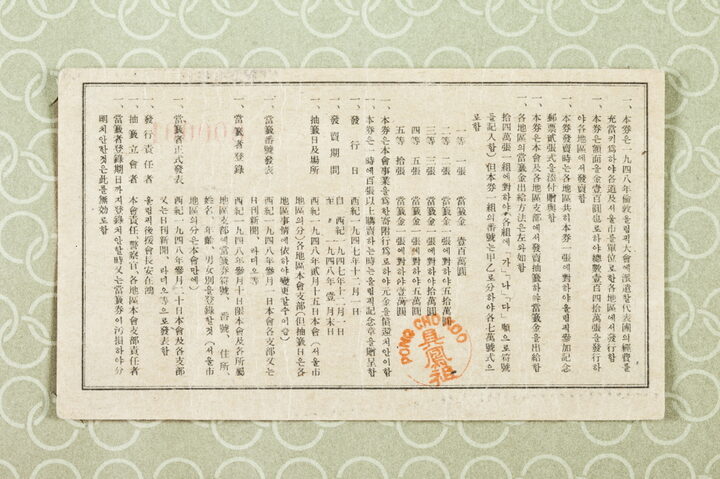 一、本券은一九四八年倫敦올림픽大會에派遣할代表團의經費를
充當키爲하야各道及서울市를單位로한各地區에서發行함
一、本券은額面을金壹百圓也로하야總數壹百四拾萬張을發行하
야各地區에서發賣함
一、本券發賣時는各地區共히本券一張에對하야올림픽參加記念
郵票貳張式을添付贈與함
一、本券은本會及各地區支部에서發賣抽籤하야當籤金을出給함
一、各地區의當籤金出給方法은左와如함
拾四萬張一組에對하야(各組에「가」「나」「다」順으로符號
을記入함)但本券一組의番號는甲乙로分하야各七萬號式으
로함
一等 一張 當籤金 壹百萬圓
二等 二張 當籤金一張에對하야五拾萬圓
三等 三張 當籤金一張에對하야拾萬圓
四等 五張 當籤金一張에對하야五萬圓
五等 拾張 當籤金一張에對하야壹萬圓
一、本券은本會事業을爲한寄附行爲로하야元金을償還치안이함
一、本券은一時에百張以上購買하는時는올림픽記念章을贈呈함
一、發行日 西紀一九四七年十二月一日
一、發賣期間 自 西紀一九四七年十二月一日
至 〃 一九四八年壹月末日
一、抽籤日及場所 西紀一九四八年貳月十五日本會(서울市
地區의分)各地區本會支部(但抽籤日은各
地區事情에依하야變更할수이슴)
一、當籤番號發表 西紀一九四八年參月一日本會各支部又는
日刊新聞、라디오等
一、當籤者登錄 西紀一九四八年參月十日限本會及各所屬
地區支部에當籤券符號、番號、住所、
姓名、年齡、男女別을登錄할것(서울市
地區의分은本會만에)
一、當籤者正式發表 西紀一九四八年參月二十日本會及各支部
又는日刊新聞、라디오等으로發表함
一、發行責任者 올림픽後援會長安在鴻
一、抽籤立會者 本會責任、警察官、各地區本會支部責任者
一、當籤者登錄期日까지登錄치안할時又는當籤券이汚損하야分
明치안한것은此를無効로함
PONG CHO WOO
具鳳祖